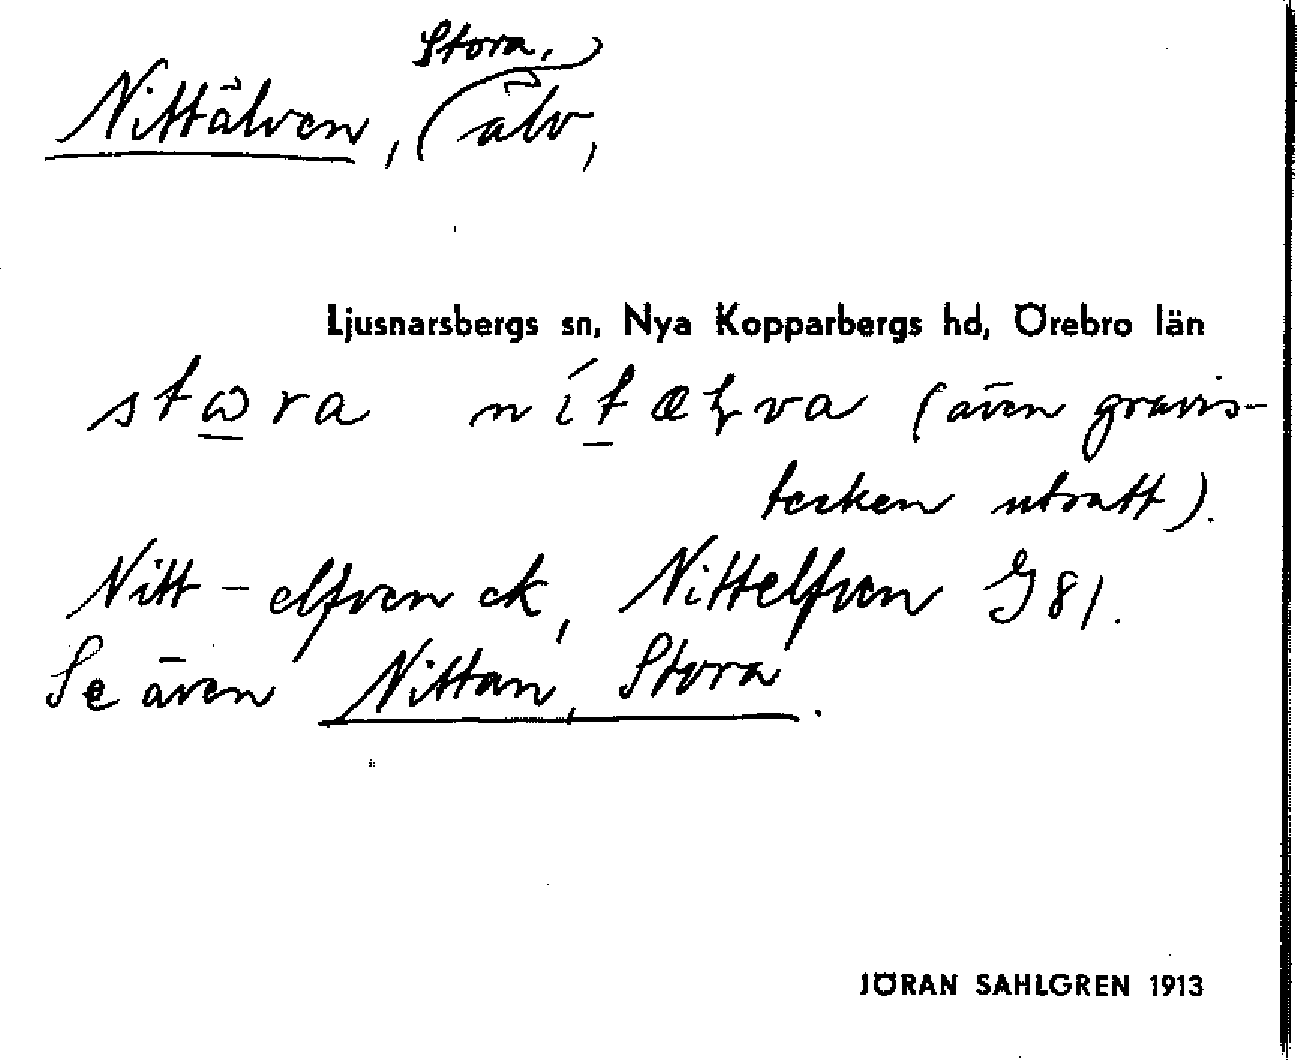 Nittälven, Stora, älv,
Ljusnarsbergs sn, Nya Kopparbergs hd, Örebro län
stωra nítæɽva (även gravis-
tecken utsatt).
Nitt-elfven ek, Nittelfven G 81.
Se även Nittan, Stora.
JÖRAN SAHLGREN 1913